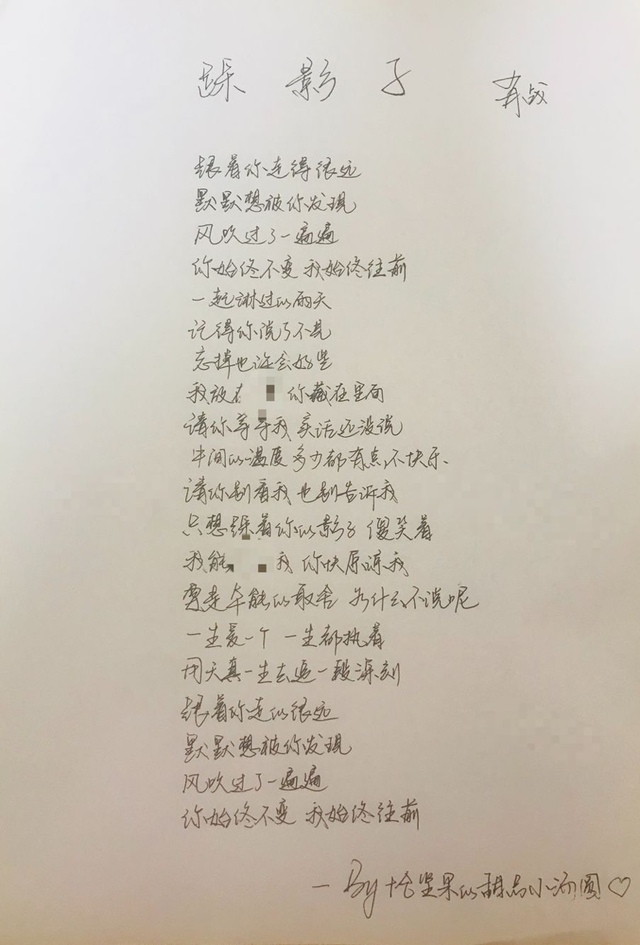 踩影子 肖战
跟着你走得很远
默默想被你发现
风吹过了一遍遍
你始终不变 我始终往前
一起淋过的雨天
记得你说了不见
忘掉也许会好些
我放在 你藏在里面
请你等等我 实话还没说
中间的温度 多少都有点不快乐
请你别看我 也别告诉我
只想踩着你的影子 傻笑着
我能 我 你快原谅我
要走 本能的取舍 为什么不说呢
一生爱一个 一生都执着
用天真一生去追一段深刻
跟着你走的很远
默默想被你发现
风吹过了一遍遍
你始终不变 我始终往前
— By 坚果的 小汤圆♡